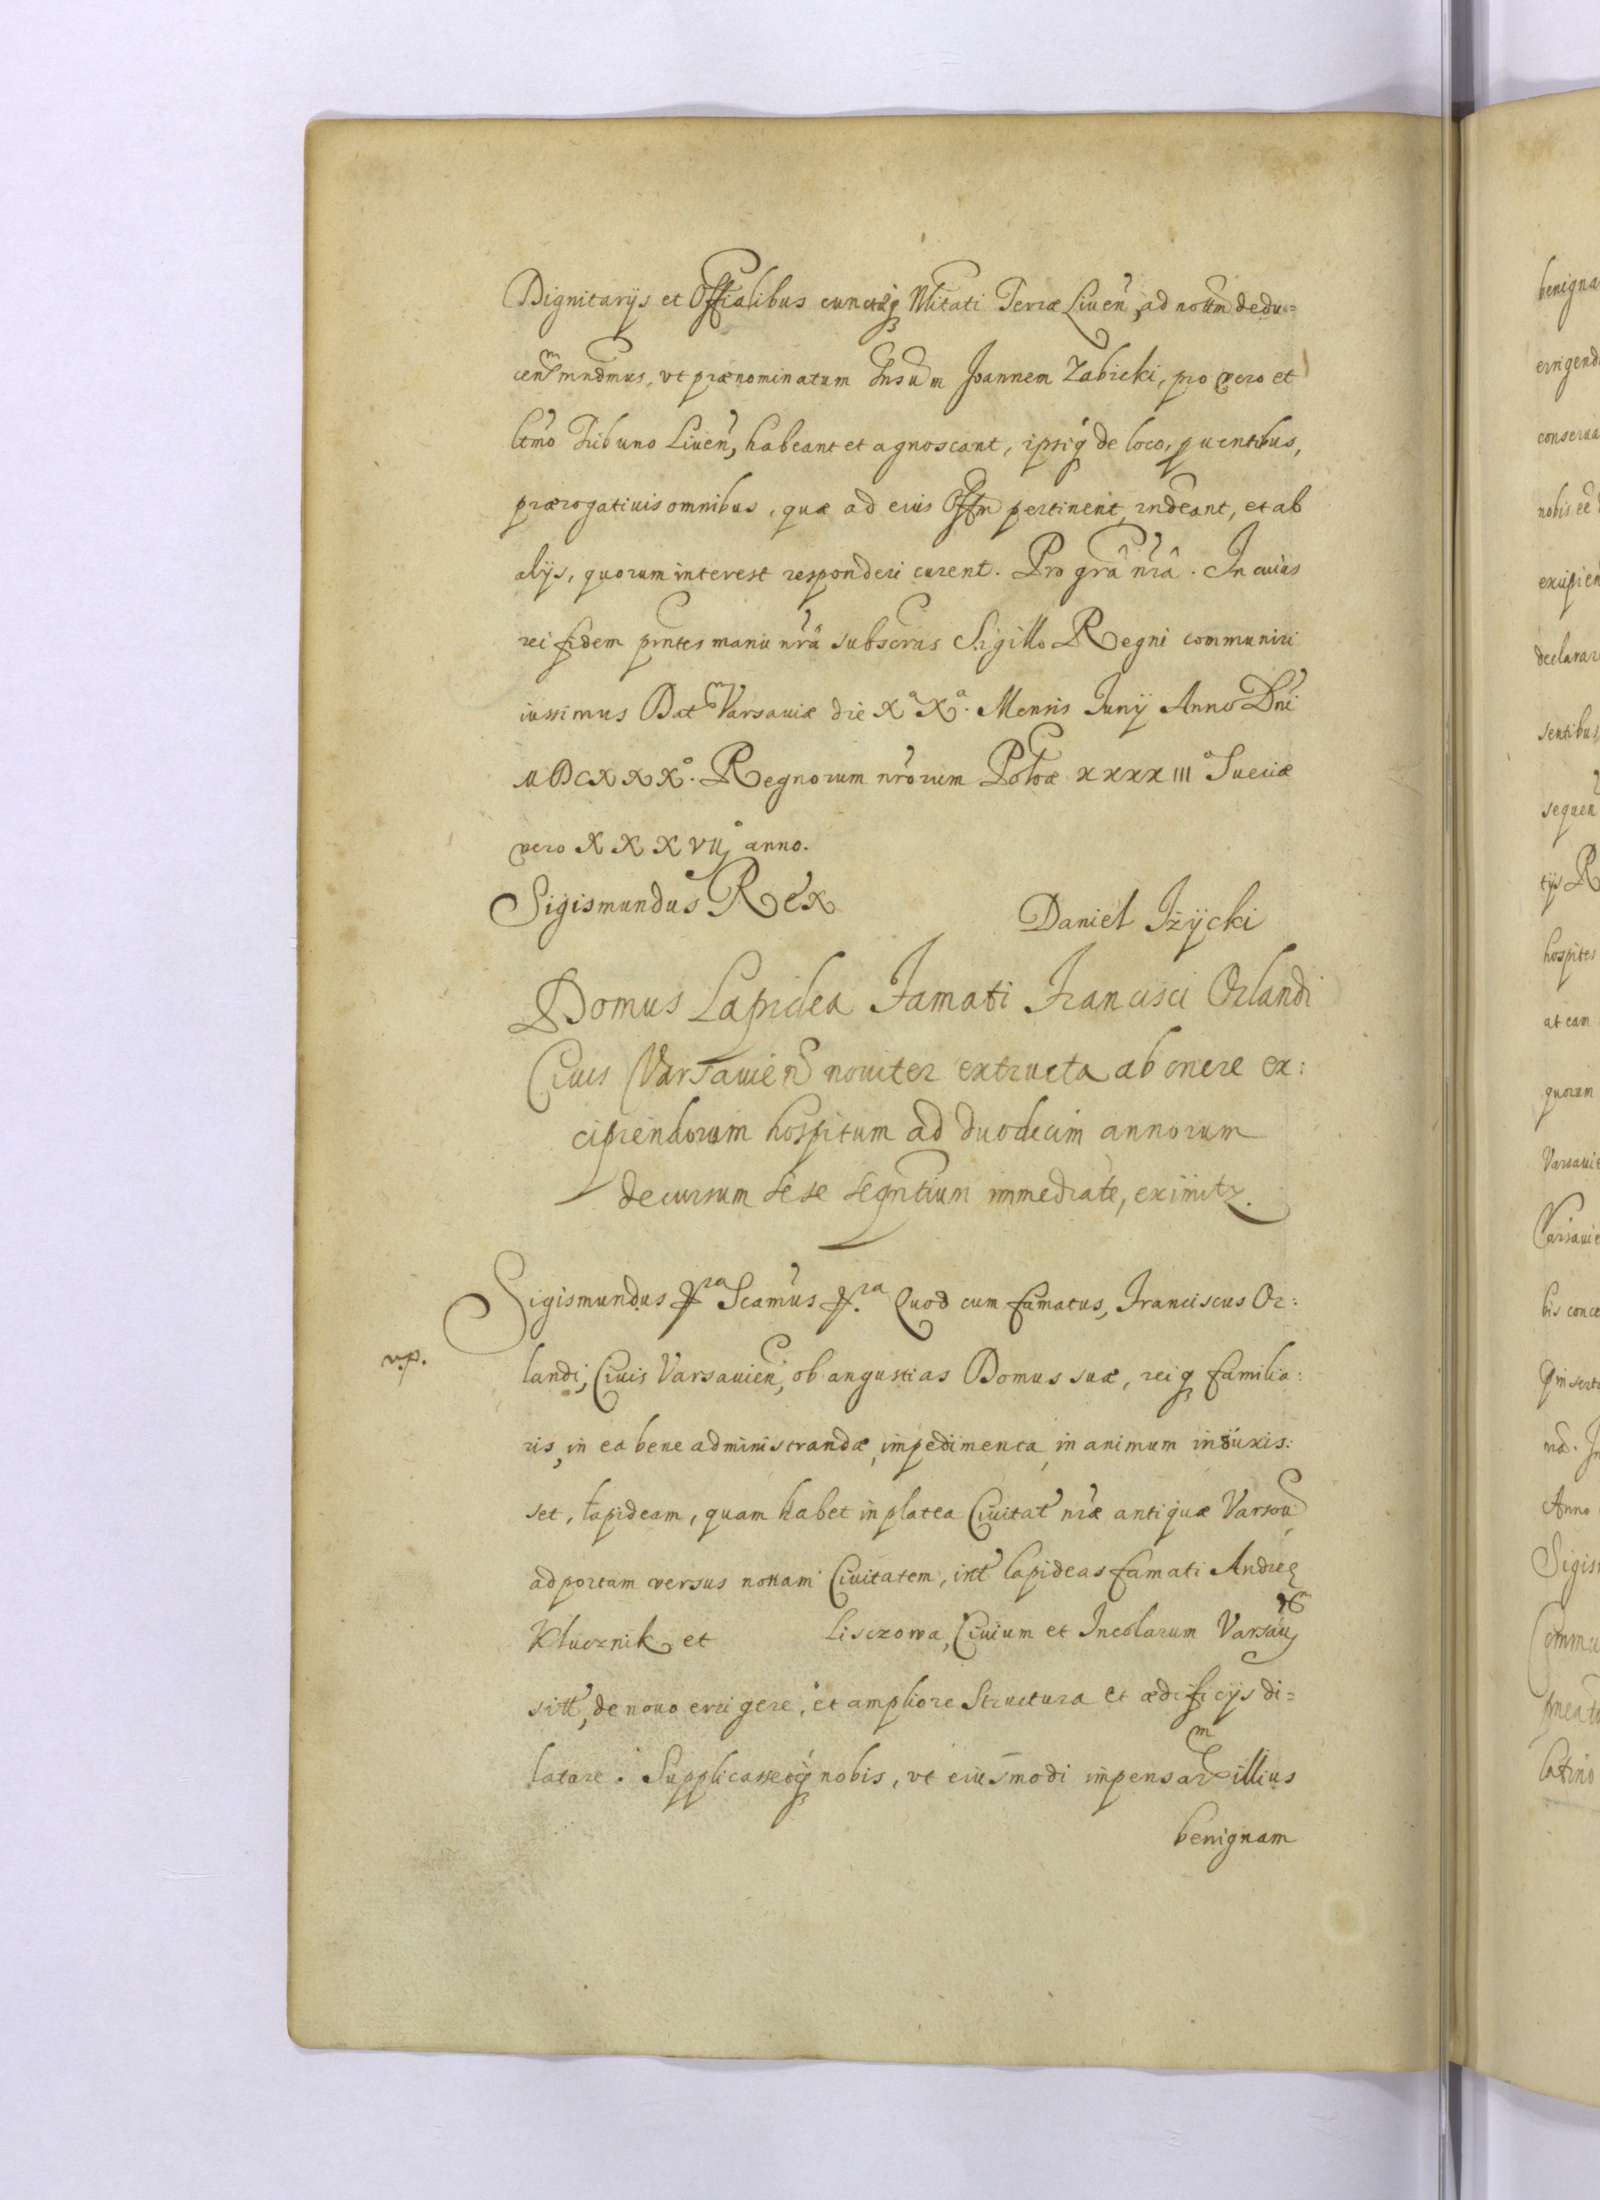 Dignitarijs et Offialibus cunctęq Nblitati Terræ Liuen̄, ad notm̄ dedu=
cen mndmus, vt prænominatum Gnsum Joannem Zabicki, pro vero et
ltmo Tribuno Liuen̄, habeant et agnoscant, ipsiq de loco, puentibus,
prærogatiuis omnibus, quæ ad eius Offm pertinent, rndeant, et ab
alijs, quorum interest responderi curent. Pro grâ nrâ. In cuius
rei fidem pntes manu nrâ subscras Sigillo Regni communiri
iussimus Dat Varsauiæ die XᵃXᵃ. Mensis Junij Anno Dni
MDCXXXº. Regnorum nrorum Polōæ xxxxIIIº Sueciæ
vero XXXVIIº anno.
Sigismundus Rex
Daniel Iżycki
Domus Lapidea Famati Francisci Orlandi
Ciuis Varsauien̄ nouiter extructa ab onere ex:
cipiendorum hospitum ad duodecim annorum
decursum sese seqntium immediate, eximitr.
Sigismundus &ra Scamus &ra Quod cum famatus, Franciscus Or:
v.p.
landi, Ciuis Varsauien̄, ob angustias Domus suæ, reiq familia:
ris, in ea bene administrandæ, impedimenta, in animum induxis:
set, lapideam, quam habet in platea Ciuitat nræ antiquæ Varsou
ad portam versus nouam Ciuitatem, int lapideas famati Andreę
Kłucznik et Lisczowa, Ciuium et Incolarum Varsau
sitt, de nouo erigere, et ampliore Structura et ædificijs di=
latare. Supplicasseq nobis, vt eiusmodi impensar illius
benignam